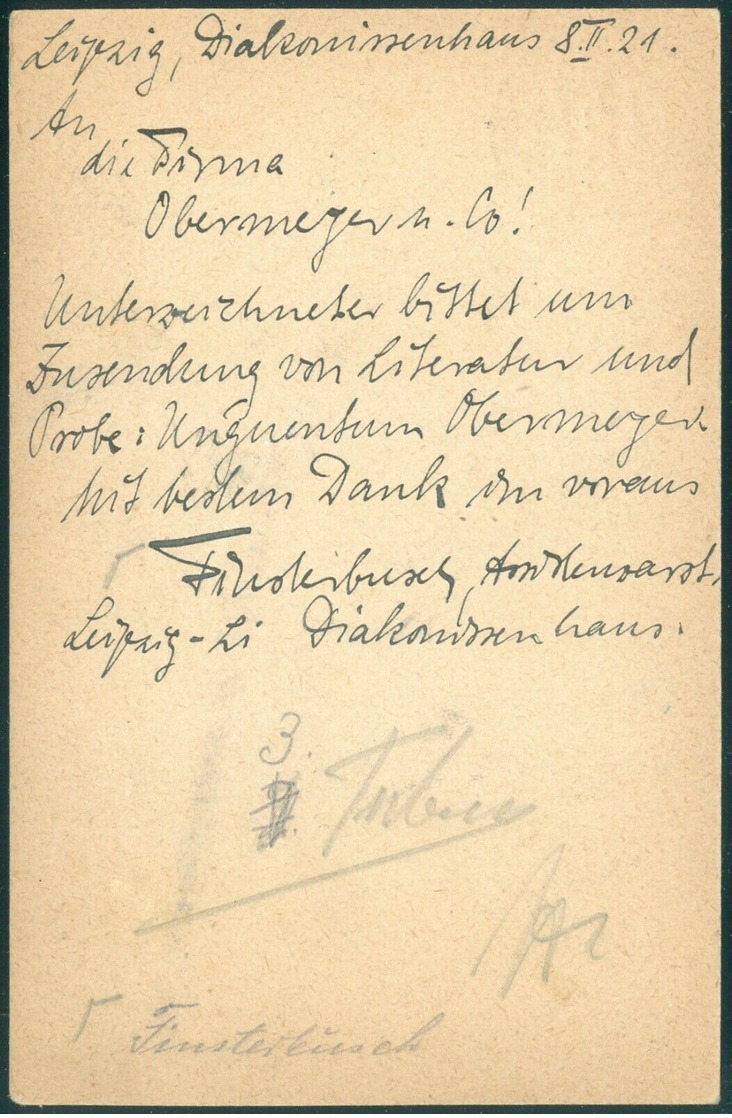 Leipzig, Diakonissenhaus 8.II.21.
An
die Firma
Obermeyer u. Co!
Unterzeichneter bittet um
Zusendung von Literatur und
Probe: Unguentum Obermeyer.
Mit bestem Dank im voraus
Finsterbusch, Assistenzarzt.
Leipzig-Li Diakonissenhaus.
3.
Tuben
Finsterbusch